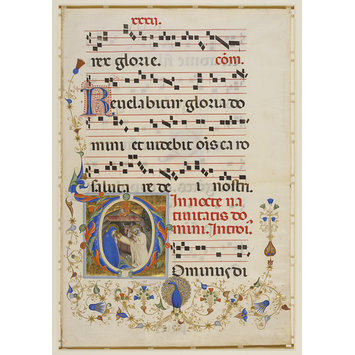 xxxii.
rex glorie. cōm̄.
Revelabitur gloria do
mini et videbit oīs caro
saluta re dei nostri.
In nocte na
tivitatis do
mini. Introi.
Ominus di